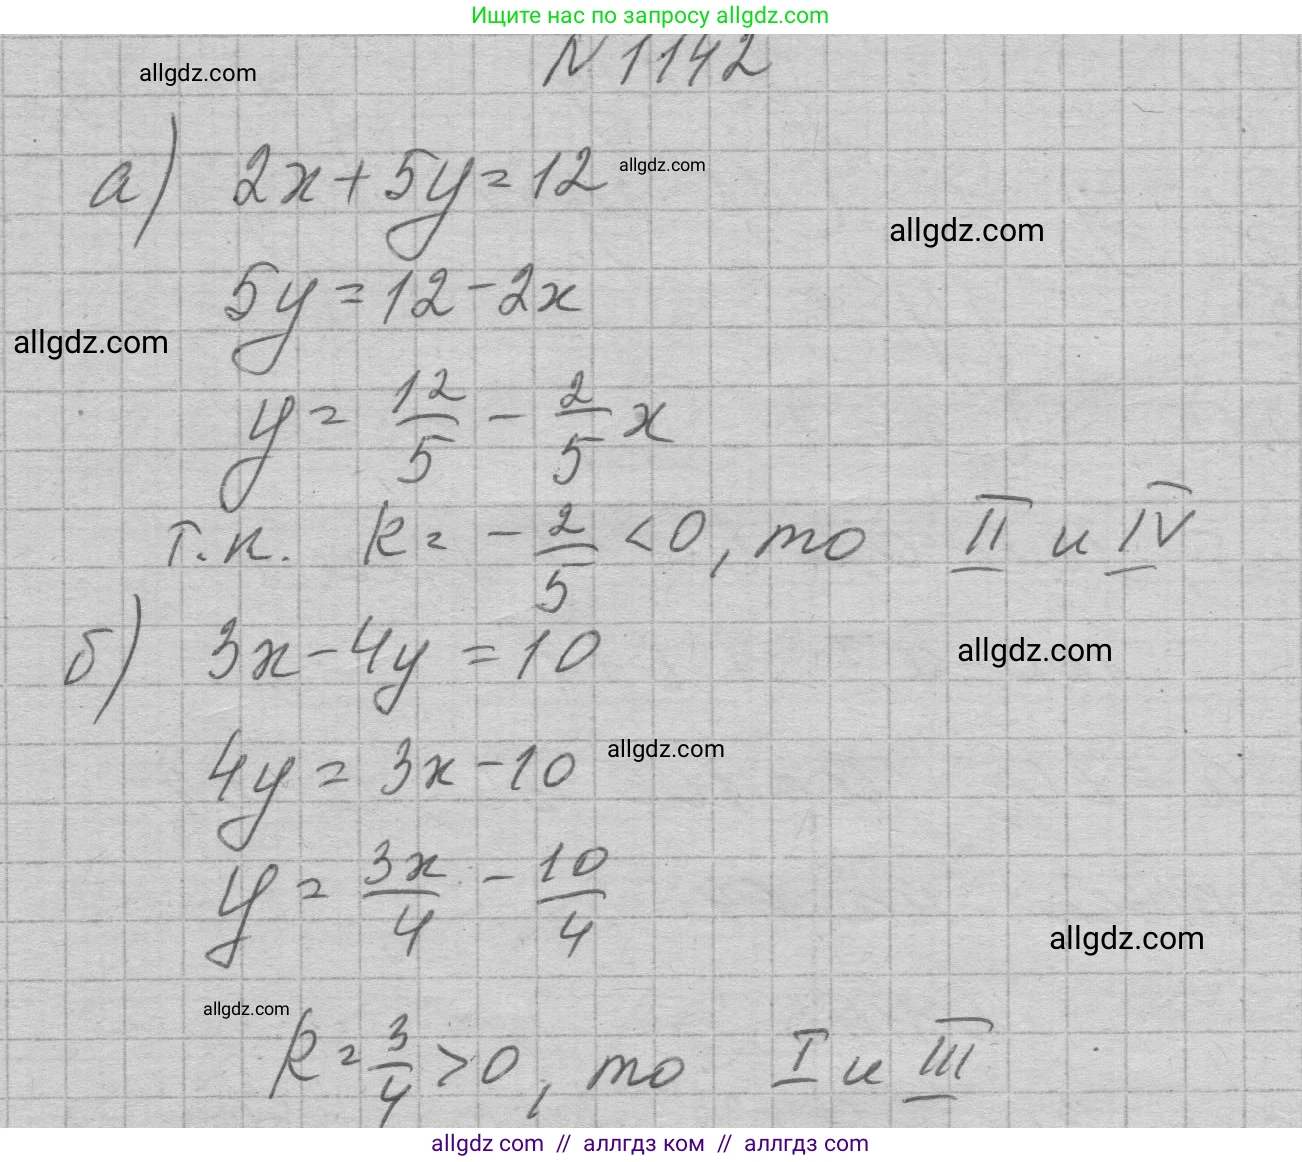 Ищите нас по запросу allgdz.com
N 1142
allgdz.com
а) 2x + 5y = 12
allgdz.com
allgdz.com
5y = 12 - 2x
allgdz.com
y = 12/5 - 2/5 x
т.к. k = - 2/5 < 0, то II и IV
б) 3x - 4y = 10
allgdz.com
4y = 3x - 10
allgdz.com
y = 3x/4 - 10/4
allgdz.com
allgdz.com
k = 3/4 > 0, то I и III
allgdz.com // аллгдз ком // аллгдз com